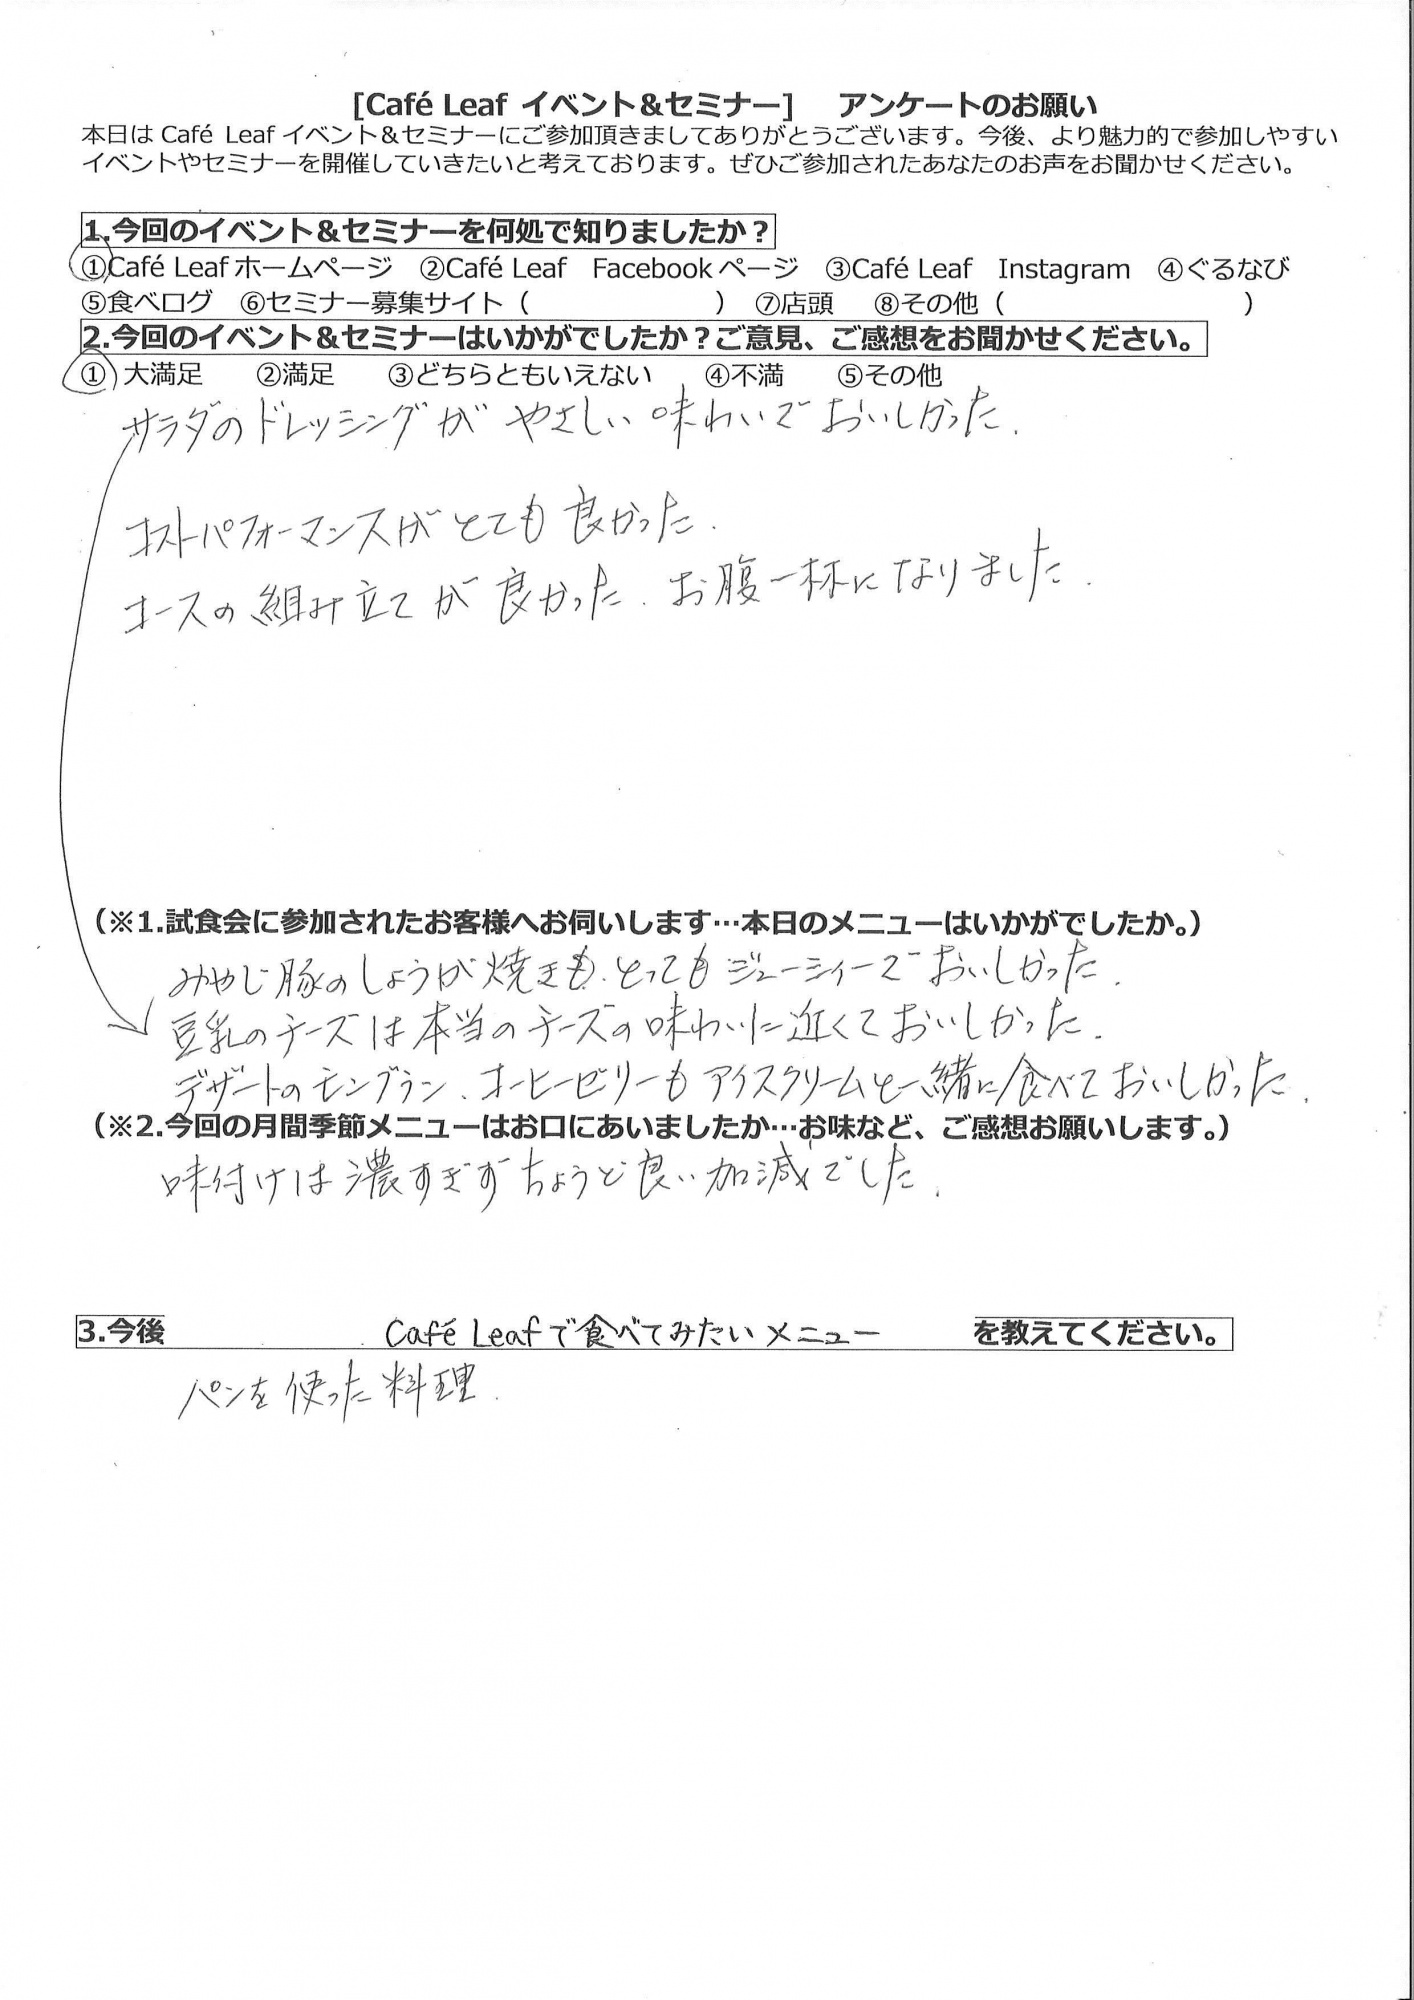 [Café Leaf イベント＆セミナー]　アンケートのお願い
本日は Café Leaf イベント＆セミナーにご参加頂きましてありがとうございます。今後、より魅力的で参加しやすい
イベントやセミナーを開催していきたいと考えております。ぜひご参加されたあなたのお声をお聞かせください。
1.今回のイベント＆セミナーを何処で知りましたか？
①Café Leaf ホームページ　②Café Leaf　Facebook ページ　③Café Leaf　Instagram　④ぐるなび
⑤食べログ　⑥セミナー募集サイト（　　　　　　　）　⑦店頭　⑧その他（　　　　　　　　　）
2.今回のイベント＆セミナーはいかがでしたか？ご意見、ご感想をお聞かせください。
① 大満足　②満足　③どちらともいえない　④不満　⑤その他
サラダのドレッシングが やさしい味わいで おいしかった.
コストパフォーマンスがとても良かった.
コースの組み立てが良かった. お腹一杯になりました.
（※1.試食会に参加されたお客様へお伺いします…本日のメニューはいかがでしたか。）
みやじ豚のしょうが焼きも、とってもジューシィーでおいしかった.
豆乳のチーズは本当のチーズの味わいに近くておいしかった.
デザートのモンブラン、コーヒーゼリーもアイスクリームと一緒に食べておいしかった.
（※2.今回の月間季節メニューはお口にあいましたか…お味など、ご感想お願いします。）
味付けは濃すぎずちょうど良い加減でした.
3.今後　Café Leafで食べてみたいメニュー　を教えてください。
パンを使った料理.